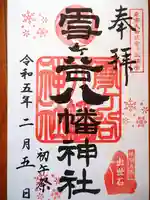 奉拝
雪ヶ谷八幡神社
初午祭
令和五年二月五日
出世石